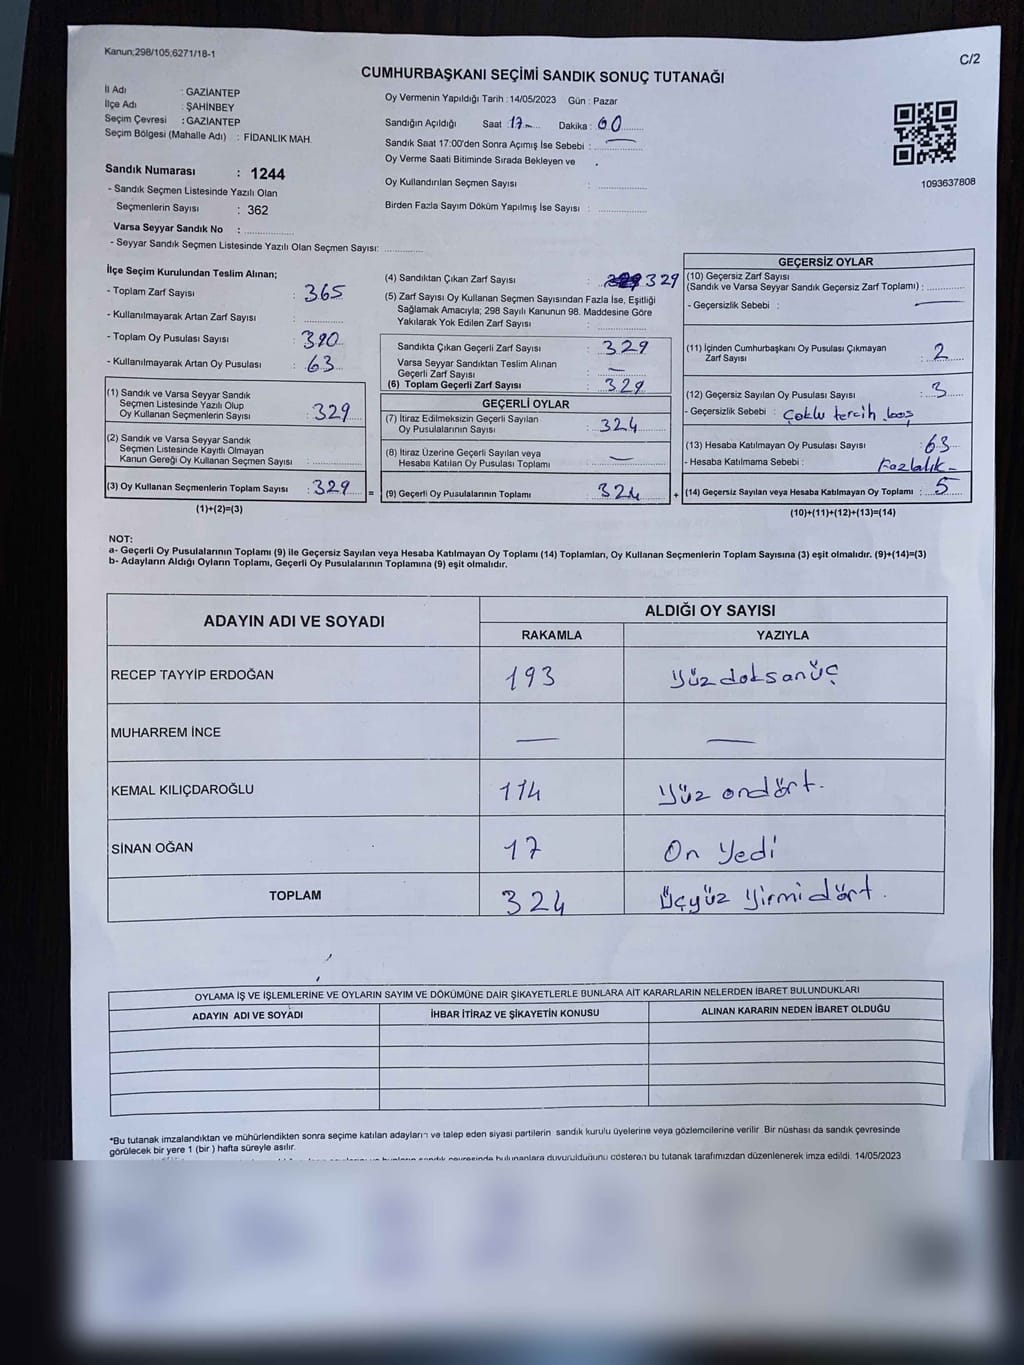 Kanun;298/105;6271/18-1
C/2
CUMHURBAŞKANI SEÇİMİ SANDIK SONUÇ TUTANAĞI
İl Adı : GAZİANTEP
İlçe Adı : ŞAHİNBEY
Seçim Çevresi : GAZİANTEP
Seçim Bölgesi (Mahalle Adı) : FİDANLIK MAH.
Sandık Numarası : 1244
- Sandık Seçmen Listesinde Yazılı Olan
Seçmenlerin Sayısı : 362
Varsa Seyyar Sandık No : ..............
- Seyyar Sandık Seçmen Listesinde Yazılı Olan Seçmen Sayısı: ............
Oy Vermenin Yapıldığı Tarih : 14/05/2023 Gün : Pazar
Sandığın Açıldığı Saat : 17 Dakika : 00
Sandık Saat 17:00'den Sonra Açımış İse Sebebi : —
Oy Verme Saati Bitiminde Sırada Bekleyen ve
Oy Kullandırılan Seçmen Sayısı : ............
Birden Fazla Sayım Döküm Yapılmış İse Sayısı : ............
1093637808
İlçe Seçim Kurulundan Teslim Alınan;
- Toplam Zarf Sayısı : 365
- Kullanılmayarak Artan Zarf Sayısı : ............
- Toplam Oy Pusulası Sayısı : 390
- Kullanılmayarak Artan Oy Pusulası : 63
(1) Sandık ve Varsa Seyyar Sandık
Seçmen Listesinde Yazılı Olup
Oy Kullanan Seçmenlerin Sayısı : 329
(2) Sandık ve Varsa Seyyar Sandık
Seçmen Listesinde Kayıtlı Olmayan
Kanun Gereği Oy Kullanan Seçmen Sayısı : ............
(3) Oy Kullanan Seçmenlerin Toplam Sayısı : 329 =
(1)+(2)=(3)
(4) Sandıktan Çıkan Zarf Sayısı : 329
(5) Zarf Sayısı Oy Kullanan Seçmen Sayısından Fazla İse, Eşitliği
Sağlamak Amacıyla; 298 Sayılı Kanunun 98. Maddesine Göre
Yakılarak Yok Edilen Zarf Sayısı : ............
Sandıkta Çıkan Geçerli Zarf Sayısı : 329
Varsa Seyyar Sandıktan Teslim Alınan
Geçerli Zarf Sayısı : —
(6) Toplam Geçerli Zarf Sayısı : 329
GEÇERLİ OYLAR
(7) İtiraz Edilmeksizin Geçerli Sayılan
Oy Pusulalarının Sayısı : 324
(8) İtiraz Üzerine Geçerli Sayılan veya
Hesaba Katılan Oy Pusulası Toplamı : —
(9) Geçerli Oy Pusulalarının Toplamı : 324 +
GEÇERSİZ OYLAR
(10) Geçersiz Zarf Sayısı
(Sandık ve Varsa Seyyar Sandık Geçersiz Zarf Toplamı) : ............
- Geçersizlik Sebebi : —
(11) İçinden Cumhurbaşkanı Oy Pusulası Çıkmayan
Zarf Sayısı : 2
(12) Geçersiz Sayılan Oy Pusulası Sayısı : 3
- Geçersizlik Sebebi : Çoklu tercih boş
(13) Hesaba Katılmayan Oy Pusulası Sayısı : 63
- Hesaba Katılmama Sebebi : Fazlalık -
(14) Geçersiz Sayılan veya Hesaba Katılmayan Oy Toplamı : 5
(10)+(11)+(12)+(13)=(14)
NOT:
a- Geçerli Oy Pusulalarının Toplamı (9) ile Geçersiz Sayılan veya Hesaba Katılmayan Oy Toplamı (14) Toplamları, Oy Kullanan Seçmenlerin Toplam Sayısına (3) eşit olmalıdır. (9)+(14)=(3)
b- Adayların Aldığı Oyların Toplamı, Geçerli Oy Pusulalarının Toplamına (9) eşit olmalıdır.
ADAYIN ADI VE SOYADI ALDIĞI OY SAYISI
RAKAMLA YAZIYLA
RECEP TAYYİP ERDOĞAN 193 Yüz doksanüç
MUHARREM İNCE — —
KEMAL KILIÇDAROĞLU 114 Yüz ondört.
SİNAN OĞAN 17 On Yedi
TOPLAM 324 Üçyüz Yirmidört.
OYLAMA İŞ VE İŞLEMLERİNE VE OYLARIN SAYIM VE DÖKÜMÜNE DAİR ŞİKAYETLERLE BUNLARA AİT KARARLARIN NELERDEN İBARET BULUNDUKLARI
ADAYIN ADI VE SOYADI İHBAR İTİRAZ VE ŞİKAYETİN KONUSU ALINAN KARARIN NEDEN İBARET OLDUĞU
*Bu tutanak imzalandıktan ve mühürlendikten sonra seçime katılan adayların ve talep eden siyasi partilerin sandık kurulu üyelerine veya gözlemcilerine verilir. Bir nüshası da sandık çevresinde
görülecek bir yere 1 (bir ) hafta süreyle asılır.
bulunanlara duyurulduğunu gösteren bu tutanak tarafımızdan düzenlenerek imza edildi. 14/05/2023